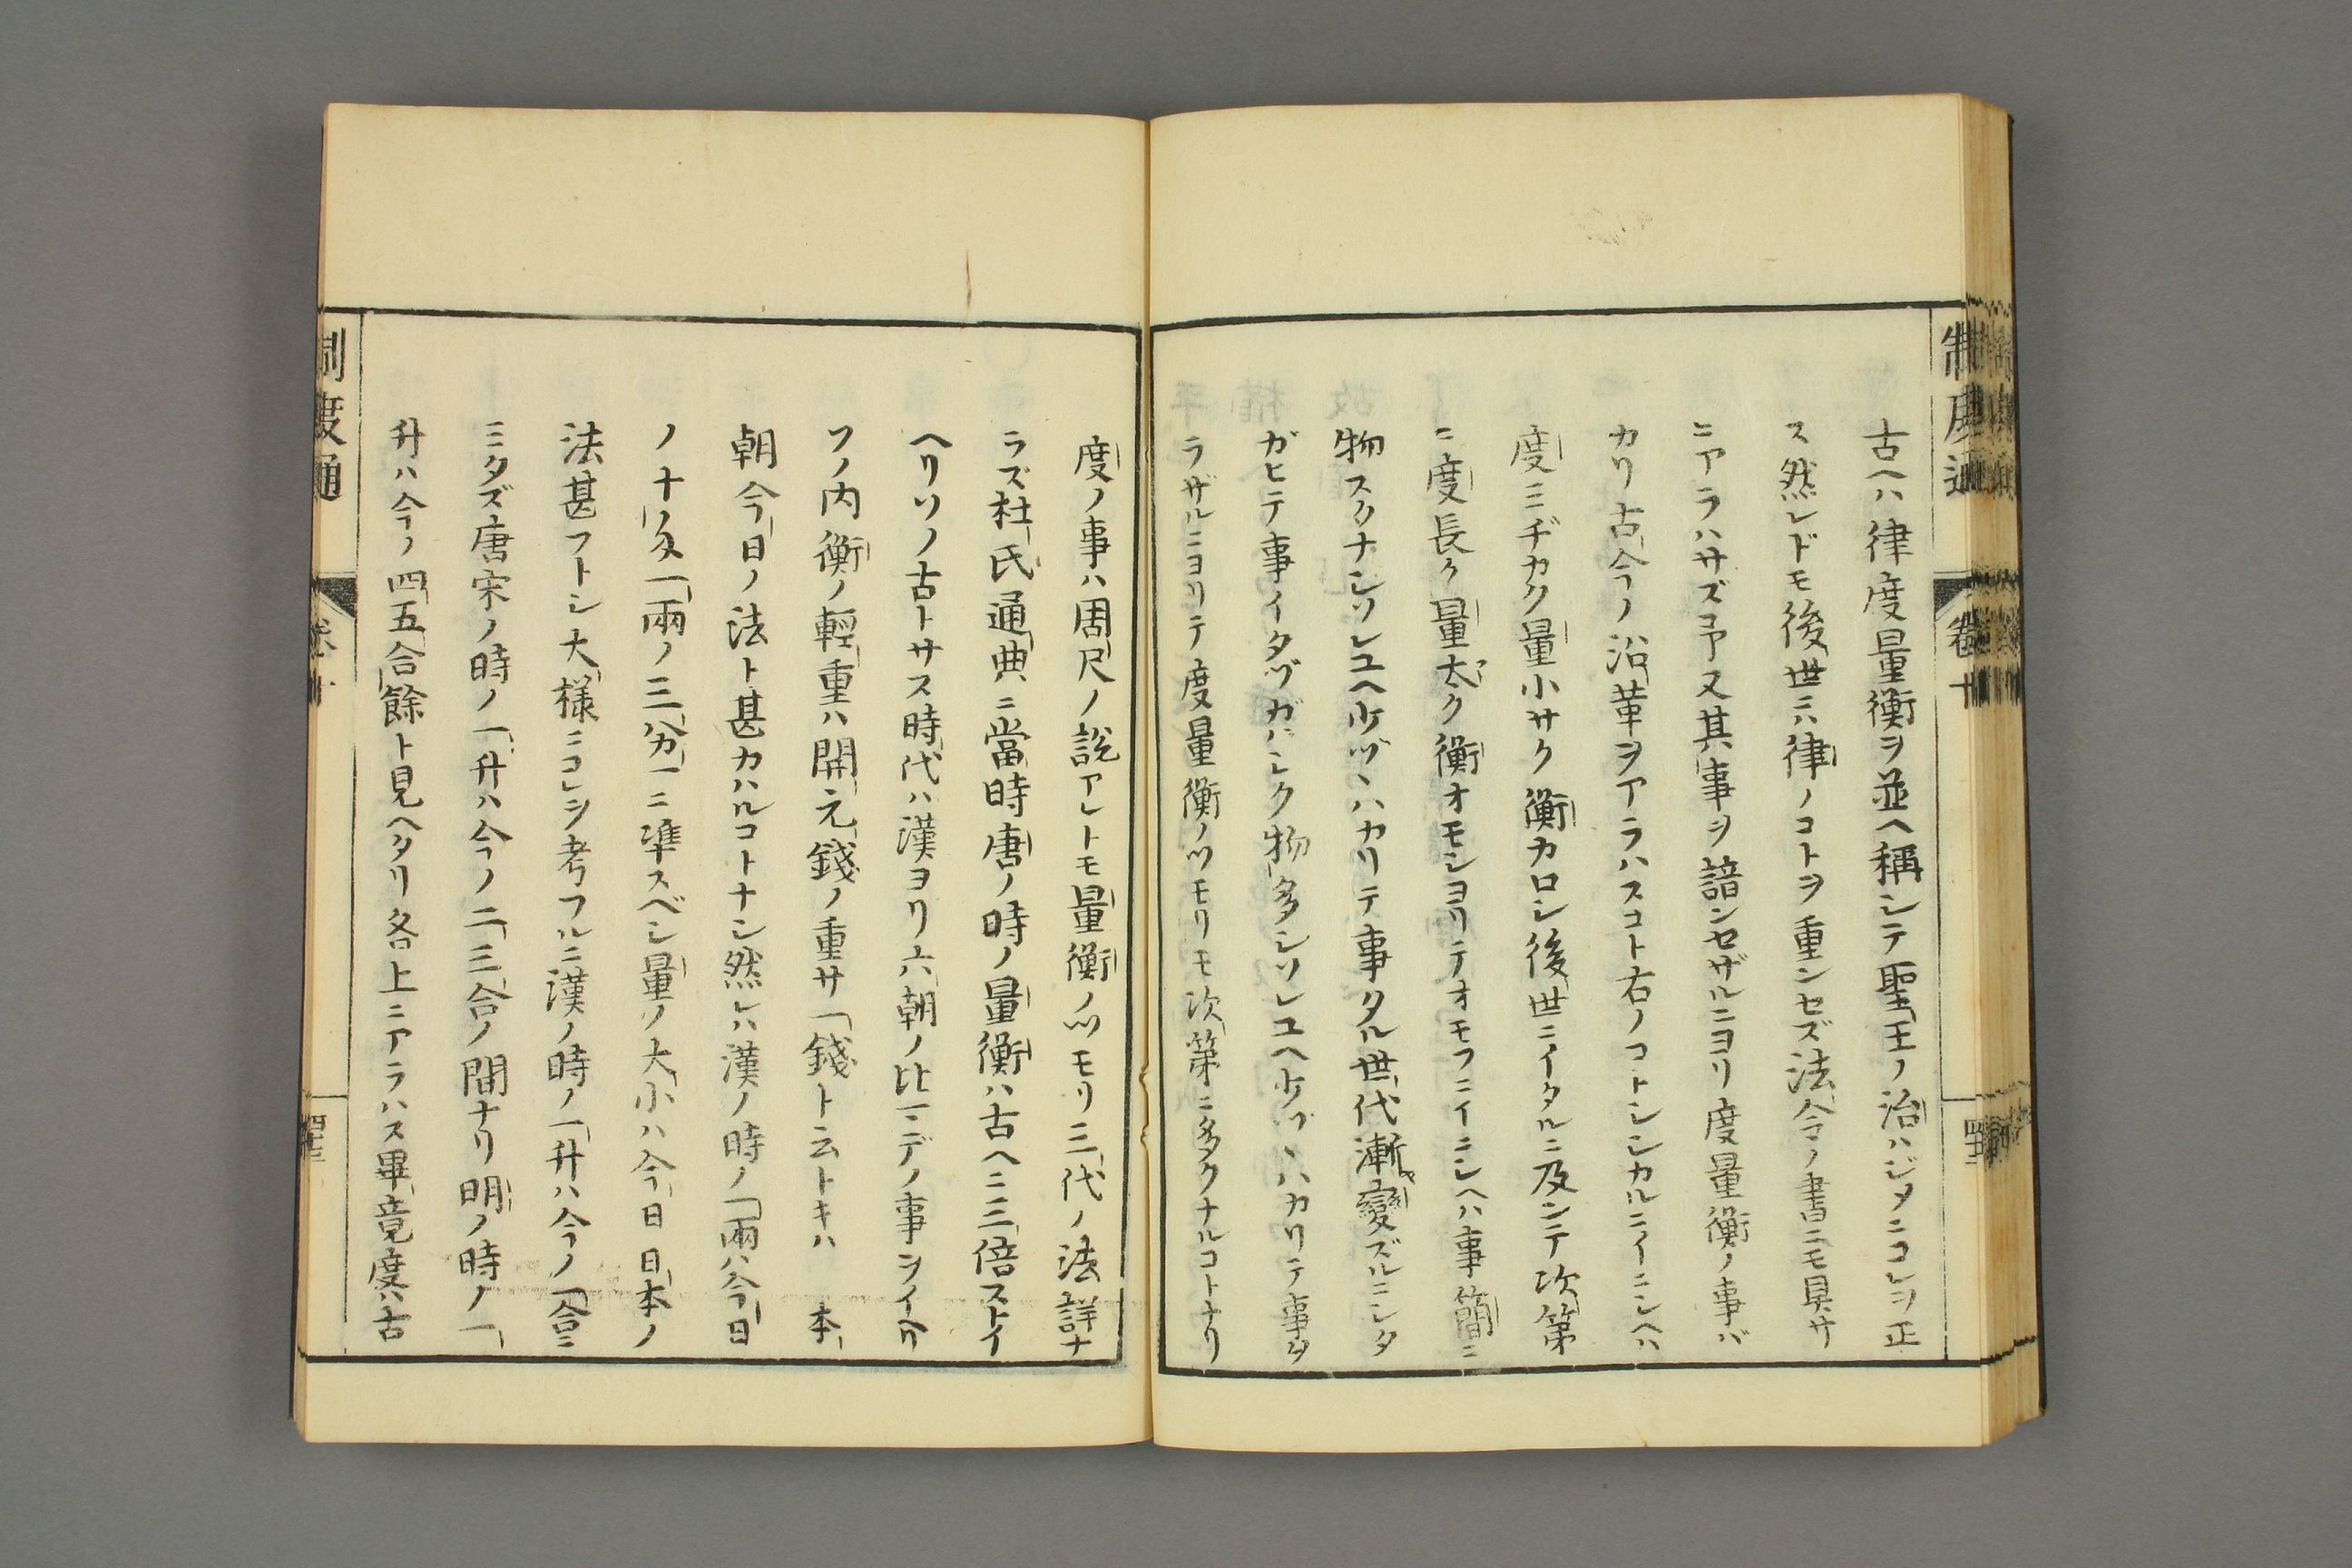 制度通
卷十
古ヘハ律度量衡ヲ並ヘ稱シテ聖王ノ治ハジメニコレヲ正
ス然レドモ後世ニハ律ノコトヲ重ンセズ法令ノ書ニモ具サ
ニアラハサズ予又其事ヲ諳ンセザルニヨリ度量衡ノ事バ
カリ古今ノ沿革ヲアラハスコト右ノコトシシカルニイニシヘハ
度ミヂカク量小サク衡カロシ後世ニイタルニ及ンテ次第
ニ度長ク量大ク衡オモシヨリテオモフニイニシヘハ事簡ニ
物スクナシソレユヘ少ヅヽハカリテ事タル世代漸変ズルニシタ
ガヒテ事イタヅガハシク物多シソレユヘ少ヅヽハカリテ事タ
ラザルニヨリテ度量衡ノツモリモ次第ニ多クナルコトナリ
度ノ事ハ周尺ノ說アレトモ量衡ノツモリ三代ノ法詳ナ
ラズ杜氏通典ニ當時唐ノ時ノ量衡ハ古ヘニ三倍ストイ
ヘリソノ古トサス時代ハ漢ヨリ六朝ノ比マデノ事ヲイヘリ
ソノ内衡ノ輕重ハ開元錢ノ重サ一錢ト云トキハ 本
朝今日ノ法ト甚カハルコトナシ然レハ漢ノ時ノ一兩ハ今日
ノ十匁一兩ノ三分一ニ準スベシ量ノ大小ハ今日日本ノ
法甚フトシ大樣ニコレヲ考フルニ漢ノ時ノ一升ハ今ノ一合ニ
ミタズ唐宋ノ時ノ一升ハ今ノ二三合ノ間ナリ明ノ時ノ一
升ハ今ノ四五合餘ト見ヘタリ各上ニアラハス畢竟度ハ古
制度通